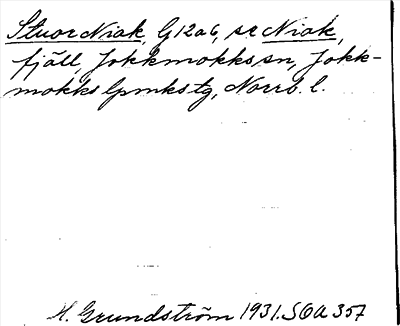 Stuor Niak, G12a6, se Niak,
fjäll, Jokkmokks sn, Jokk-
mokks lpmkstg, Norrb. l.
H. Grundström 1931. SOA 357